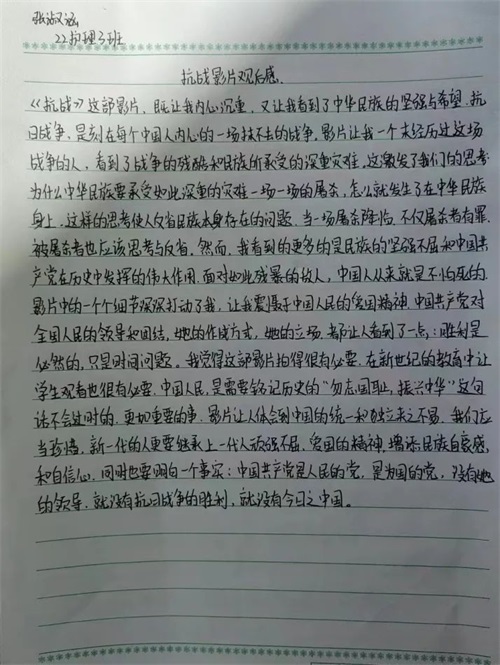 张淑涵
22护理3班
抗战影片观后感.
《抗战》这部影片、既让我内心沉重、又让我看到了中华民族的坚强与希望.抗
日战争、是刻在每个中国人内心的一场抹不去的战争.影片让我一个未经历过这场
战争的人、看到了战争的残酷和民族所承受的深重灾难、这激发了我们的思考
为什么中华民族要承受如此深重的灾难一场一场的屠杀、怎么就发生了在中华民族
身上、这样的思考使人反省民族本身存在的问题.当一场屠杀降临.不仅屠杀者有罪.
被屠杀者也应该思考与反省.然而、我看到的更多的是民族的坚强不屈和中国共
产党在历史中发挥的伟大作用.面对如此残暴的敌人,中国人从来就是不怕死的.
影片中的一个个细节深深打动了我,让我震慑于中国人民的爱国精神.中国共产党对
全国人民的领导和团结,她的作战方式,她的立场.都让人看到了一点:胜利是
必然的,只是时间问题。我觉得这部影片拍得很有必要.在新世纪的教育中让
学生观看也很有必要.中国人民,是需要铭记历史的"勿忘国耻,振兴中华"这句
话不会过时的.更加重要的事.影片让人体会到中国的统一和独立来之不易.我们应
当珍惜.新一代的人更要继承上一代人顽强不屈.爱国的精神.增添民族自豪感,
和自信心.同时也要明白一个事实:中国共产党是人民的党,是为国的党,没有她
的领导.就没有抗日战争的胜利,就没有今日之中国。